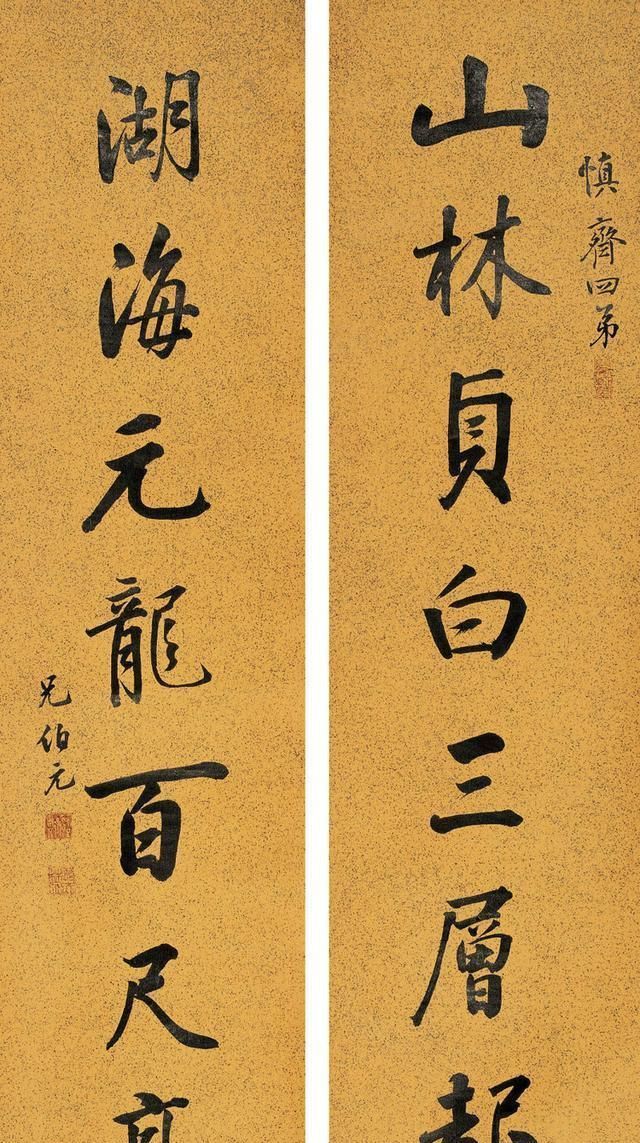 慎齊四弟
山林貞白三層起
湖海元龍百尺
兄伯元